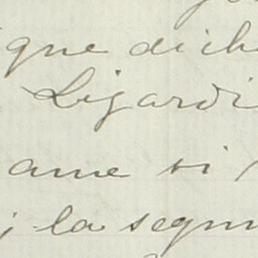 que dich
Ligardi
ame si
i la segun